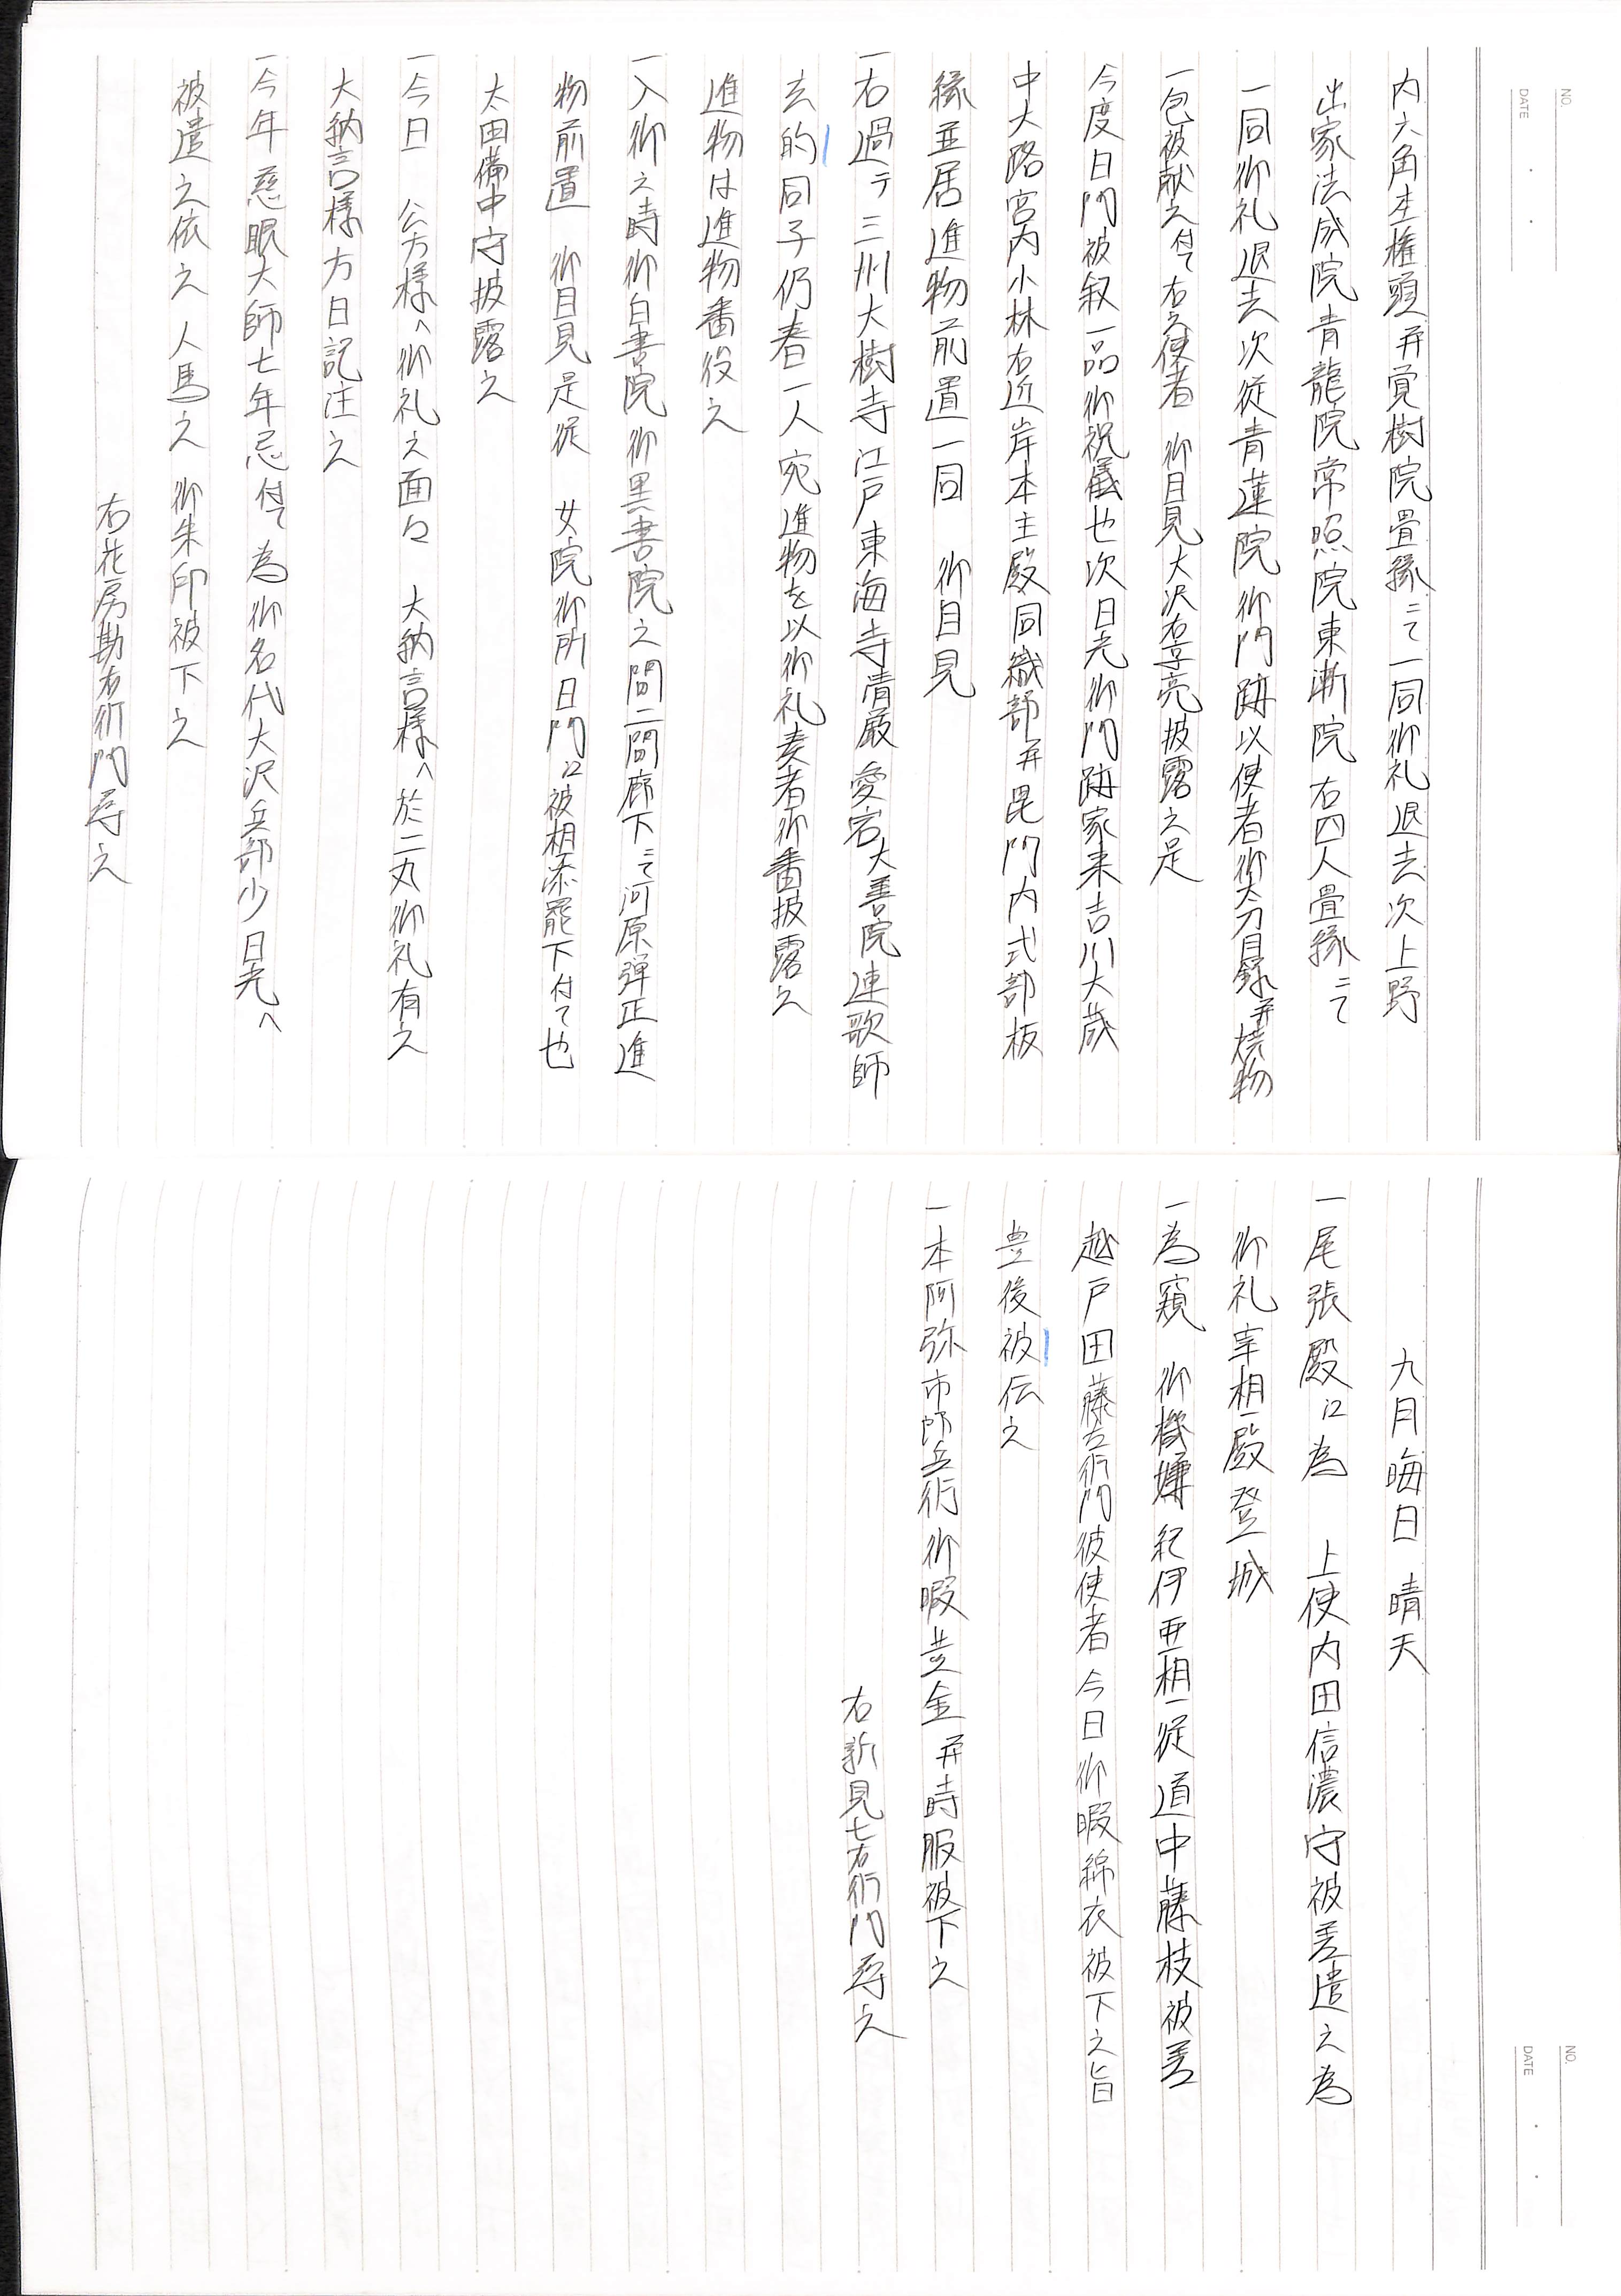 NO.
DATE
内六角主権頭并覚樹院畳縁ニて一同御礼退去次上野
出家法成院青龍院常照院東漸院右四人畳縁ニて
一同御礼退去次従青蓮院御門跡以使者御太刀目録并焼物
一包被献之付て右之使者 御目見大沢右京亮披露之是
今度日門被叙一品御祝儀也次日光御門跡家来吉川大蔵
中大路宮内小林右近岸本主殿同織部并毘門内式部板
縁並居進物前置一同 御目見
一右過テ三州大樹寺江戸東海寺清厳愛宕大善院連歌師
玄的同子仍春一人宛進物を以御礼奏者御番披露之
進物は進物番役之
一入御之時御白書院御黒書院之間二間廊下ニて河原弾正進
物前置 御目見是従 女院御所日門江被相添罷下付て也
太田備中守披露之
一今日 公方様へ御礼之面々 大納言様へ於二丸御礼有之
大納言様方日記注之
一今年慈眼大師七年忌付て為御名代大沢兵部少日光へ
被遣之依之人馬之御朱印被下之
右花房勘右衛門尋之
NO.
DATE
九月晦日 晴天
一尾張殿江為 上使内田信濃守被差遣之為
御礼宰相殿登城
一為窺 御機嫌紀伊亜相従道中藤枝被差
越戸田藤左衛門彼使者今日御暇綿衣被下之旨
豊後被伝之
一本阿弥市郎兵衛御暇黄金并時服被下之
右新見七右衛門尋之